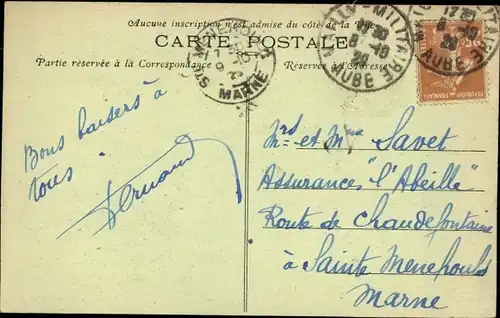 Aucune inscription n'est admise du côté de la vue
CARTE POSTALE
Partie réservée à la Correspondance
Réservée à l'Adresse
MENEHOULD
MARNE
MILITAIRE
AUBE
Bons baisers à
tous
Fernand
Mrs et Mme Savet
Assurances "l'Abeille"
Route de Chaudefontaine
à Sainte Menehould
Marne